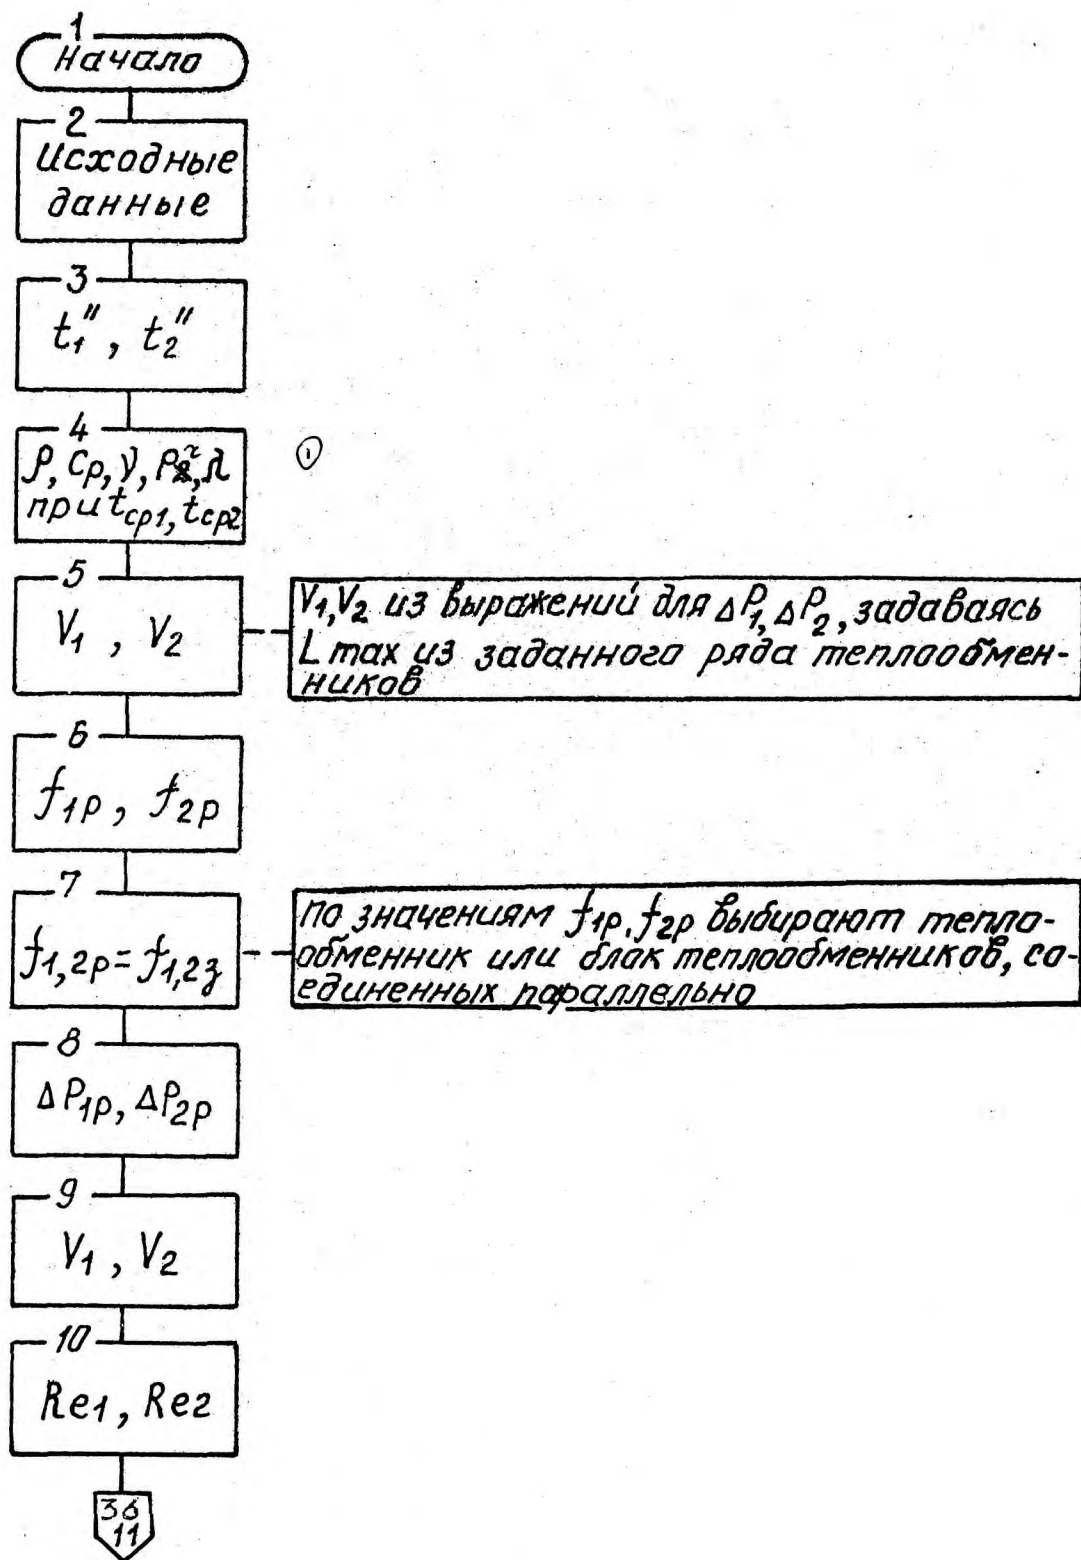 1
Начало
2
Исходные
данные
3
t₁", t₂"
4
ρ, Cp, ν, Pr, λ
при tср1, tср2
1
5
V₁, V₂
V₁, V₂ из выражений для ΔP₁, ΔP₂, задаваясь
L max из заданного ряда теплообмен-
ников
6
f₁р, f₂р
7
f₁,₂р = f₁,₂з
По значениям f₁р, f₂р выбирают тепло-
обменник или блок теплообменников, со-
единенных параллельно
8
ΔP₁р, ΔP₂р
9
V₁, V₂
10
Re1, Re2
36
11